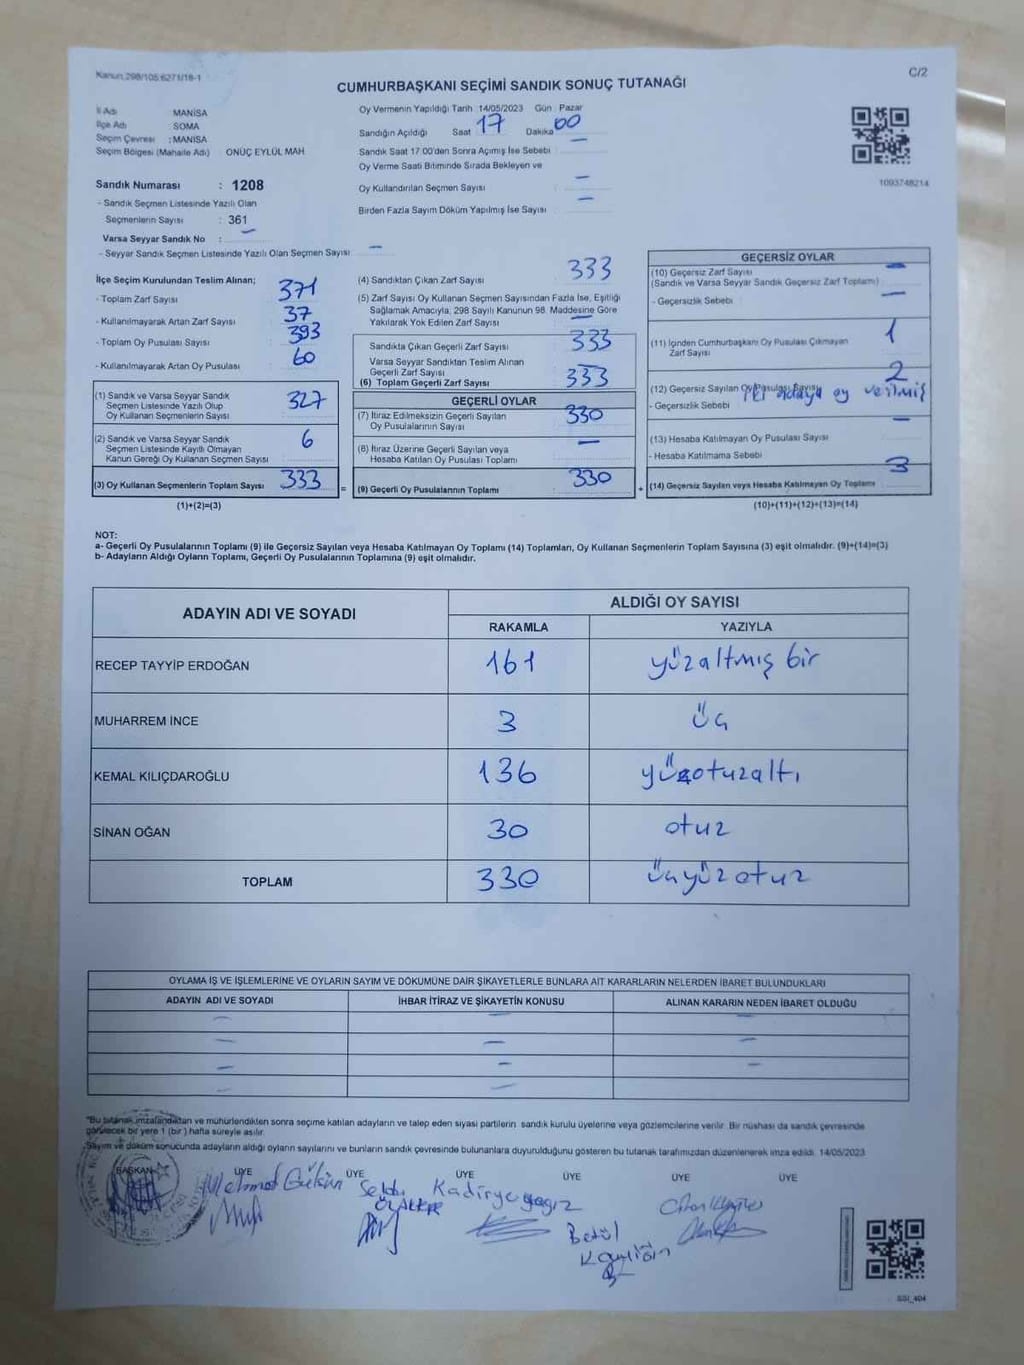 Kanun:298/105:6271/18-1
C/2
CUMHURBAŞKANI SEÇİMİ SANDIK SONUÇ TUTANAĞI
İl Adı MANİSA
İlçe Adı SOMA
Seçim Çevresi : MANİSA
Seçim Bölgesi (Mahalle Adı) ONÜÇ EYLÜL MAH
Sandık Numarası : 1208
- Sandık Seçmen Listesinde Yazılı Olan
Seçmenlerin Sayısı : 361
Varsa Seyyar Sandık No : –
- Seyyar Sandık Seçmen Listesinde Yazılı Olan Seçmen Sayısı –
Oy Vermenin Yapıldığı Tarih 14/05/2023 Gün Pazar
Sandığın Açıldığı Saat 17 Dakika 00
Sandık Saat 17.00'den Sonra Açımış İse Sebebi –
Oy Verme Saati Bitiminde Sırada Bekleyen ve
Oy Kullandırılan Seçmen Sayısı –
Birden Fazla Sayım Döküm Yapılmış İse Sayısı –
1093748214
İlçe Seçim Kurulundan Teslim Alınan;
- Toplam Zarf Sayısı 371
- Kullanılmayarak Artan Zarf Sayısı 37
- Toplam Oy Pusulası Sayısı 393
- Kullanılmayarak Artan Oy Pusulası 60
(1) Sandık ve Varsa Seyyar Sandık
Seçmen Listesinde Yazılı Olup
Oy Kullanan Seçmenlerin Sayısı 327
(2) Sandık ve Varsa Seyyar Sandık
Seçmen Listesinde Kayıtlı Olmayan
Kanun Gereği Oy Kullanan Seçmen Sayısı 6
(3) Oy Kullanan Seçmenlerin Toplam Sayısı 333
(1)+(2)=(3)
(4) Sandıktan Çıkan Zarf Sayısı 333
(5) Zarf Sayısı Oy Kullanan Seçmen Sayısından Fazla İse, Eşitliği
Sağlamak Amacıyla, 298 Sayılı Kanunun 98. Maddesine Göre
Yakılarak Yok Edilen Zarf Sayısı –
Sandıkta Çıkan Geçerli Zarf Sayısı 333
Varsa Seyyar Sandıktan Teslim Alınan
Geçerli Zarf Sayısı
(6) Toplam Geçerli Zarf Sayısı 333
GEÇERLİ OYLAR
(7) İtiraz Edilmeksizin Geçerli Sayılan
Oy Pusulalarının Sayısı 330
(8) İtiraz Üzerine Geçerli Sayılan veya
Hesaba Katılan Oy Pusulası Toplamı –
= (9) Geçerli Oy Pusulalarının Toplamı 330
GEÇERSİZ OYLAR
(10) Geçersiz Zarf Sayısı –
(Sandık ve Varsa Seyyar Sandık Geçersiz Zarf Toplamı)
- Geçersizlik Sebebi –
(11) İçinden Cumhurbaşkanı Oy Pusulası Çıkmayan
Zarf Sayısı 1
(12) Geçersiz Sayılan Oy Pusulası Sayısı 2
- Geçersizlik Sebebi iki adaya oy verilmiş
(13) Hesaba Katılmayan Oy Pusulası Sayısı –
- Hesaba Katılmama Sebebi
+ (14) Geçersiz Sayılan veya Hesaba Katılmayan Oy Toplamı 3
(10)+(11)+(12)+(13)=(14)
NOT:
a- Geçerli Oy Pusulalarının Toplamı (9) ile Geçersiz Sayılan veya Hesaba Katılmayan Oy Toplamı (14) Toplamları, Oy Kullanan Seçmenlerin Toplam Sayısına (3) eşit olmalıdır. (9)+(14)=(3)
b- Adayların Aldığı Oyların Toplamı, Geçerli Oy Pusulalarının Toplamına (9) eşit olmalıdır.
ADAYIN ADI VE SOYADI ALDIĞI OY SAYISI
RAKAMLA YAZIYLA
RECEP TAYYİP ERDOĞAN 161 yüzaltmış bir
MUHARREM İNCE 3 üç
KEMAL KILIÇDAROĞLU 136 yüzotuzaltı
SİNAN OĞAN 30 otuz
TOPLAM 330 üçyüzotuz
OYLAMA İŞ VE İŞLEMLERİNE VE OYLARIN SAYIM VE DÖKÜMÜNE DAİR ŞİKAYETLERLE BUNLARA AİT KARARLARIN NELERDEN İBARET BULUNDUKLARI
ADAYIN ADI VE SOYADI İHBAR İTİRAZ VE ŞİKAYETİN KONUSU ALINAN KARARIN NEDEN İBARET OLDUĞU
– – –
– – –
– – –
– –
"Bu tutanak imzalandıktan ve mühürlendikten sonra seçime katılan adayların ve talep eden siyasi partilerin sandık kurulu üyelerine veya gözlemcilerine verilir. Bir nüshası da sandık çevresinde
görülecek bir yere 1 (bir) hafta süreyle asılır.
Sayım ve döküm sonucunda adayların aldığı oyların sayılarını ve bunların sandık çevresinde bulunanlara duyurulduğunu gösteren bu tutanak tarafımızdan düzenlenerek imza edildi. 14/05/2023
BAŞKAN ÜYE ÜYE ÜYE ÜYE ÜYE ÜYE
Mehmet Gülsün
Betül
SSI_404